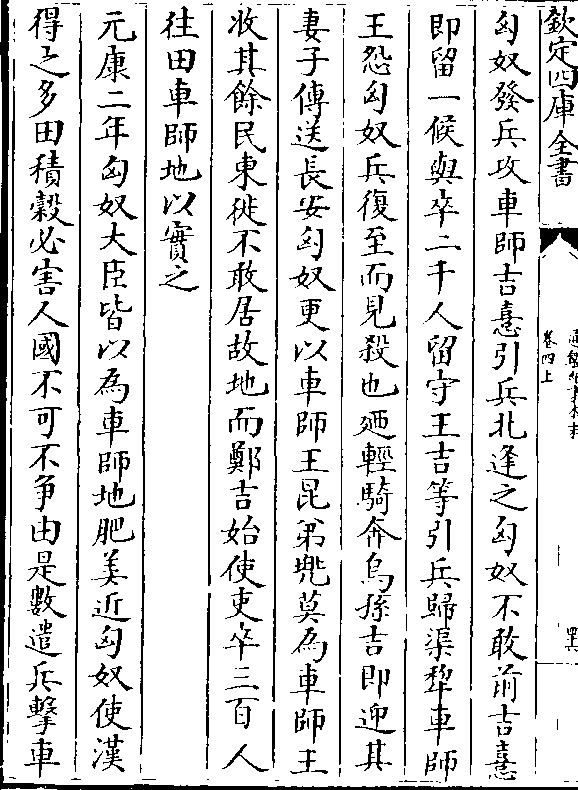 欽定四庫全書
卷四上
匈奴發兵攻車師吉憙引兵北逢之匈奴不敢前吉憙
即留一候與卒二千人留守王吉等引兵歸渠犂車師
王怨匈奴兵復至而見殺也廼輕騎奔烏孫吉即迎其
妻子傳送長安匈奴更以車師王昆弟兠莫為車師王
收其餘民東徙不敢居故地而鄭吉始使吏卒三百人
往田車師地以實之
元康二年匈奴大臣皆以為車師地肥美近匈奴使漢
得之多田積榖必害人國不可不争由是數遣兵擊車